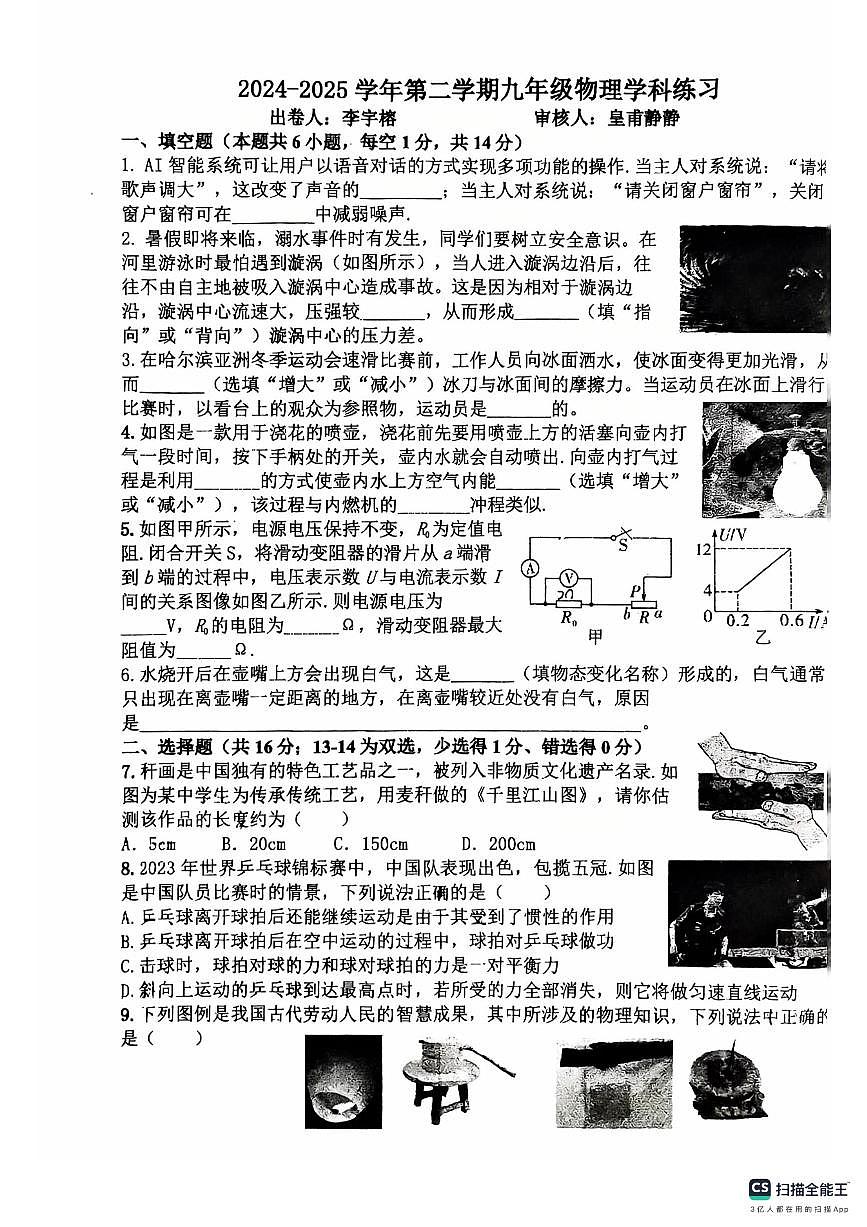 2024-2025 学年第二学期九年级物理学科练习
出卷人：李宇榕 审核人：皇甫静静
一、填空题（本题共 6 小题，每空 1 分，共 14 分）
1. AI 智能系统可让用户以语音对话的方式实现多项功能的操作. 当主人对系统说：“请将
歌声调大”，这改变了声音的________；当主人对系统说：“请关闭窗户窗帘”，关闭
窗户窗帘可在________中减弱噪声.
2. 暑假即将来临，溺水事件时有发生，同学们要树立安全意识。在
河里游泳时最怕遇到漩涡（如图所示），当人进入漩涡边沿后，往
往不由自主地被吸入漩涡中心造成事故。这是因为相对于漩涡边
沿，漩涡中心流速大，压强较______，从而形成______（填“指
向”或“背向”）漩涡中心的压力差。
3. 在哈尔滨亚洲冬季运动会速滑比赛前，工作人员向冰面洒水，使冰面变得更加光滑，从
而______（选填“增大”或“减小”）冰刀与冰面间的摩擦力。当运动员在冰面上滑行
比赛时，以看台上的观众为参照物，运动员是______的。
4. 如图是一款用于浇花的喷壶，浇花前先要用喷壶上方的活塞向壶内打
气一段时间，按下手柄处的开关，壶内水就会自动喷出. 向壶内打气过
程是利用______的方式使壶内水上方空气内能______（选填“增大”
或“减小”），该过程与内燃机的_______冲程类似.
5. 如图甲所示，电源电压保持不变，R₀为定值电
阻. 闭合开关 S，将滑动变阻器的滑片从 a 端滑
到 b 端的过程中，电压表示数 U 与电流表示数 I
间的关系图像如图乙所示. 则电源电压为
____V，R₀的电阻为_____Ω，滑动变阻器最大
阻值为_____Ω.
S
A
V
20
P
R₀ b R a
甲
U/V
12
4
0 0.2 0.6 I/A
乙
6. 水烧开后在壶嘴上方会出现白气，这是______（填物态变化名称）形成的，白气通常
只出现在离壶嘴一定距离的地方，在离壶嘴较近处没有白气，原因
是________________________________________________。
二、选择题（共 16 分；13-14 为双选，少选得 1 分、错选得 0 分）
7. 秆画是中国独有的特色工艺品之一，被列入非物质文化遗产名录. 如
图为某中学生为传承传统工艺，用麦秆做的《千里江山图》，请你估
测该作品的长度约为（ ）
A. 5cm B. 20cm C. 150cm D. 200cm
8. 2023 年世界乒乓球锦标赛中，中国队表现出色，包揽五冠. 如图
是中国队员比赛时的情景，下列说法正确的是（ ）
A. 乒乓球离开球拍后还能继续运动是由于其受到了惯性的作用
B. 乒乓球离开球拍后在空中运动的过程中，球拍对乒乓球做功
C. 击球时，球拍对球的力和球对球拍的力是一对平衡力
D. 斜向上运动的乒乓球到达最高点时，若所受的力全部消失，则它将做匀速直线运动
9. 下列图例是我国古代劳动人民的智慧成果，其中所涉及的物理知识，下列说法中正确的
是（ ）
CS 扫描全能王
3亿人都在用的扫描App